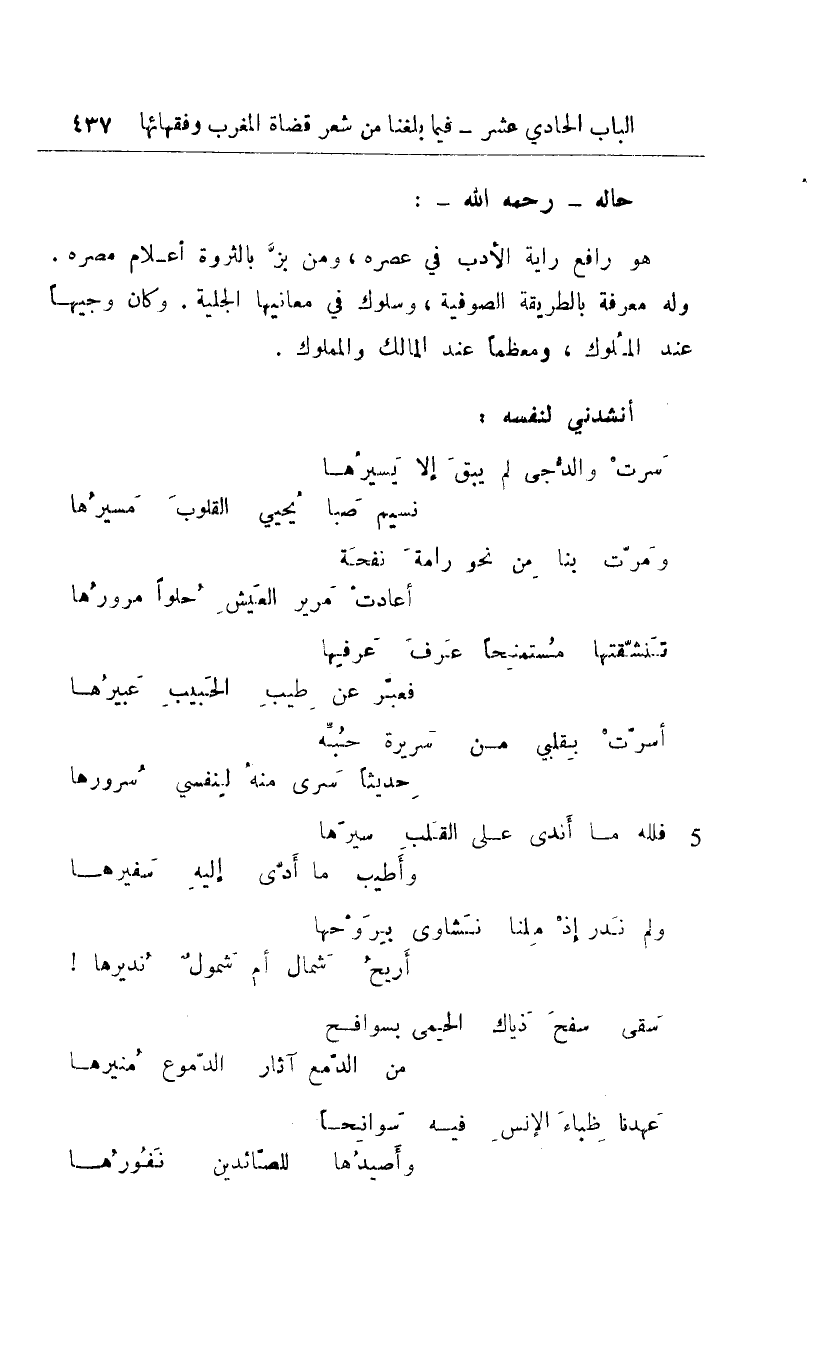 الباب الحادي عشر – فيما بلغنا من شعر قضاة المغرب وفقهائها ٤٣٧
حاله – رحمه الله – :
هو رافع راية الأدب في عصره ، ومن بزَّ بالثروة أعـلام مصره .
وله معرفة بالطريقة الصوفية ، وسلوك في معانيها الجلية . وكان وجيهـاً
عند المـُلوك ، ومعظماً عند المالك والمملوك .
أنشدني لنفسه :
سَرتْ والدُّجى لم يبقَ إلا يَسيرُهـا
نسيم صَبا يُحيي القلوبَ مَسيرُها
ومَرّت بنا مِن نحو رامةَ نفحـَة
أعادتْ مَرير العَيشِ حُلواً مرورُها
تـَنشّقتها مُستمنِحاً عَرفَ عَرفِها
فعبّر عن طِيبِ الحَبيبِ عَبيرُهـا
أسرّتْ بِقلبي مـن سَريرة حُبـِّه
حِديثاً سَرى منهُ لِنفسي سُرورها
5 فلله مـا أَندى عـلى القلبِ سيرّها
وأَطيب ما أَدّى إليهِ سَفيرهـا
ولم نَـدر إذْ مِلنا نـَشاوى بِرَوْحها
أَريحُ شَمال أم شَمولٌ نُديرها !
سَقى سفحَ ذَياك الحِمى بسوافـح
من الدّمع آثار الدّموع مُنيرهـا
عَهدنا ظِباءَ الإنسِ فيـه سَوانِحـاً
وأَصيدُها للصّائدين نَفُورُهـا